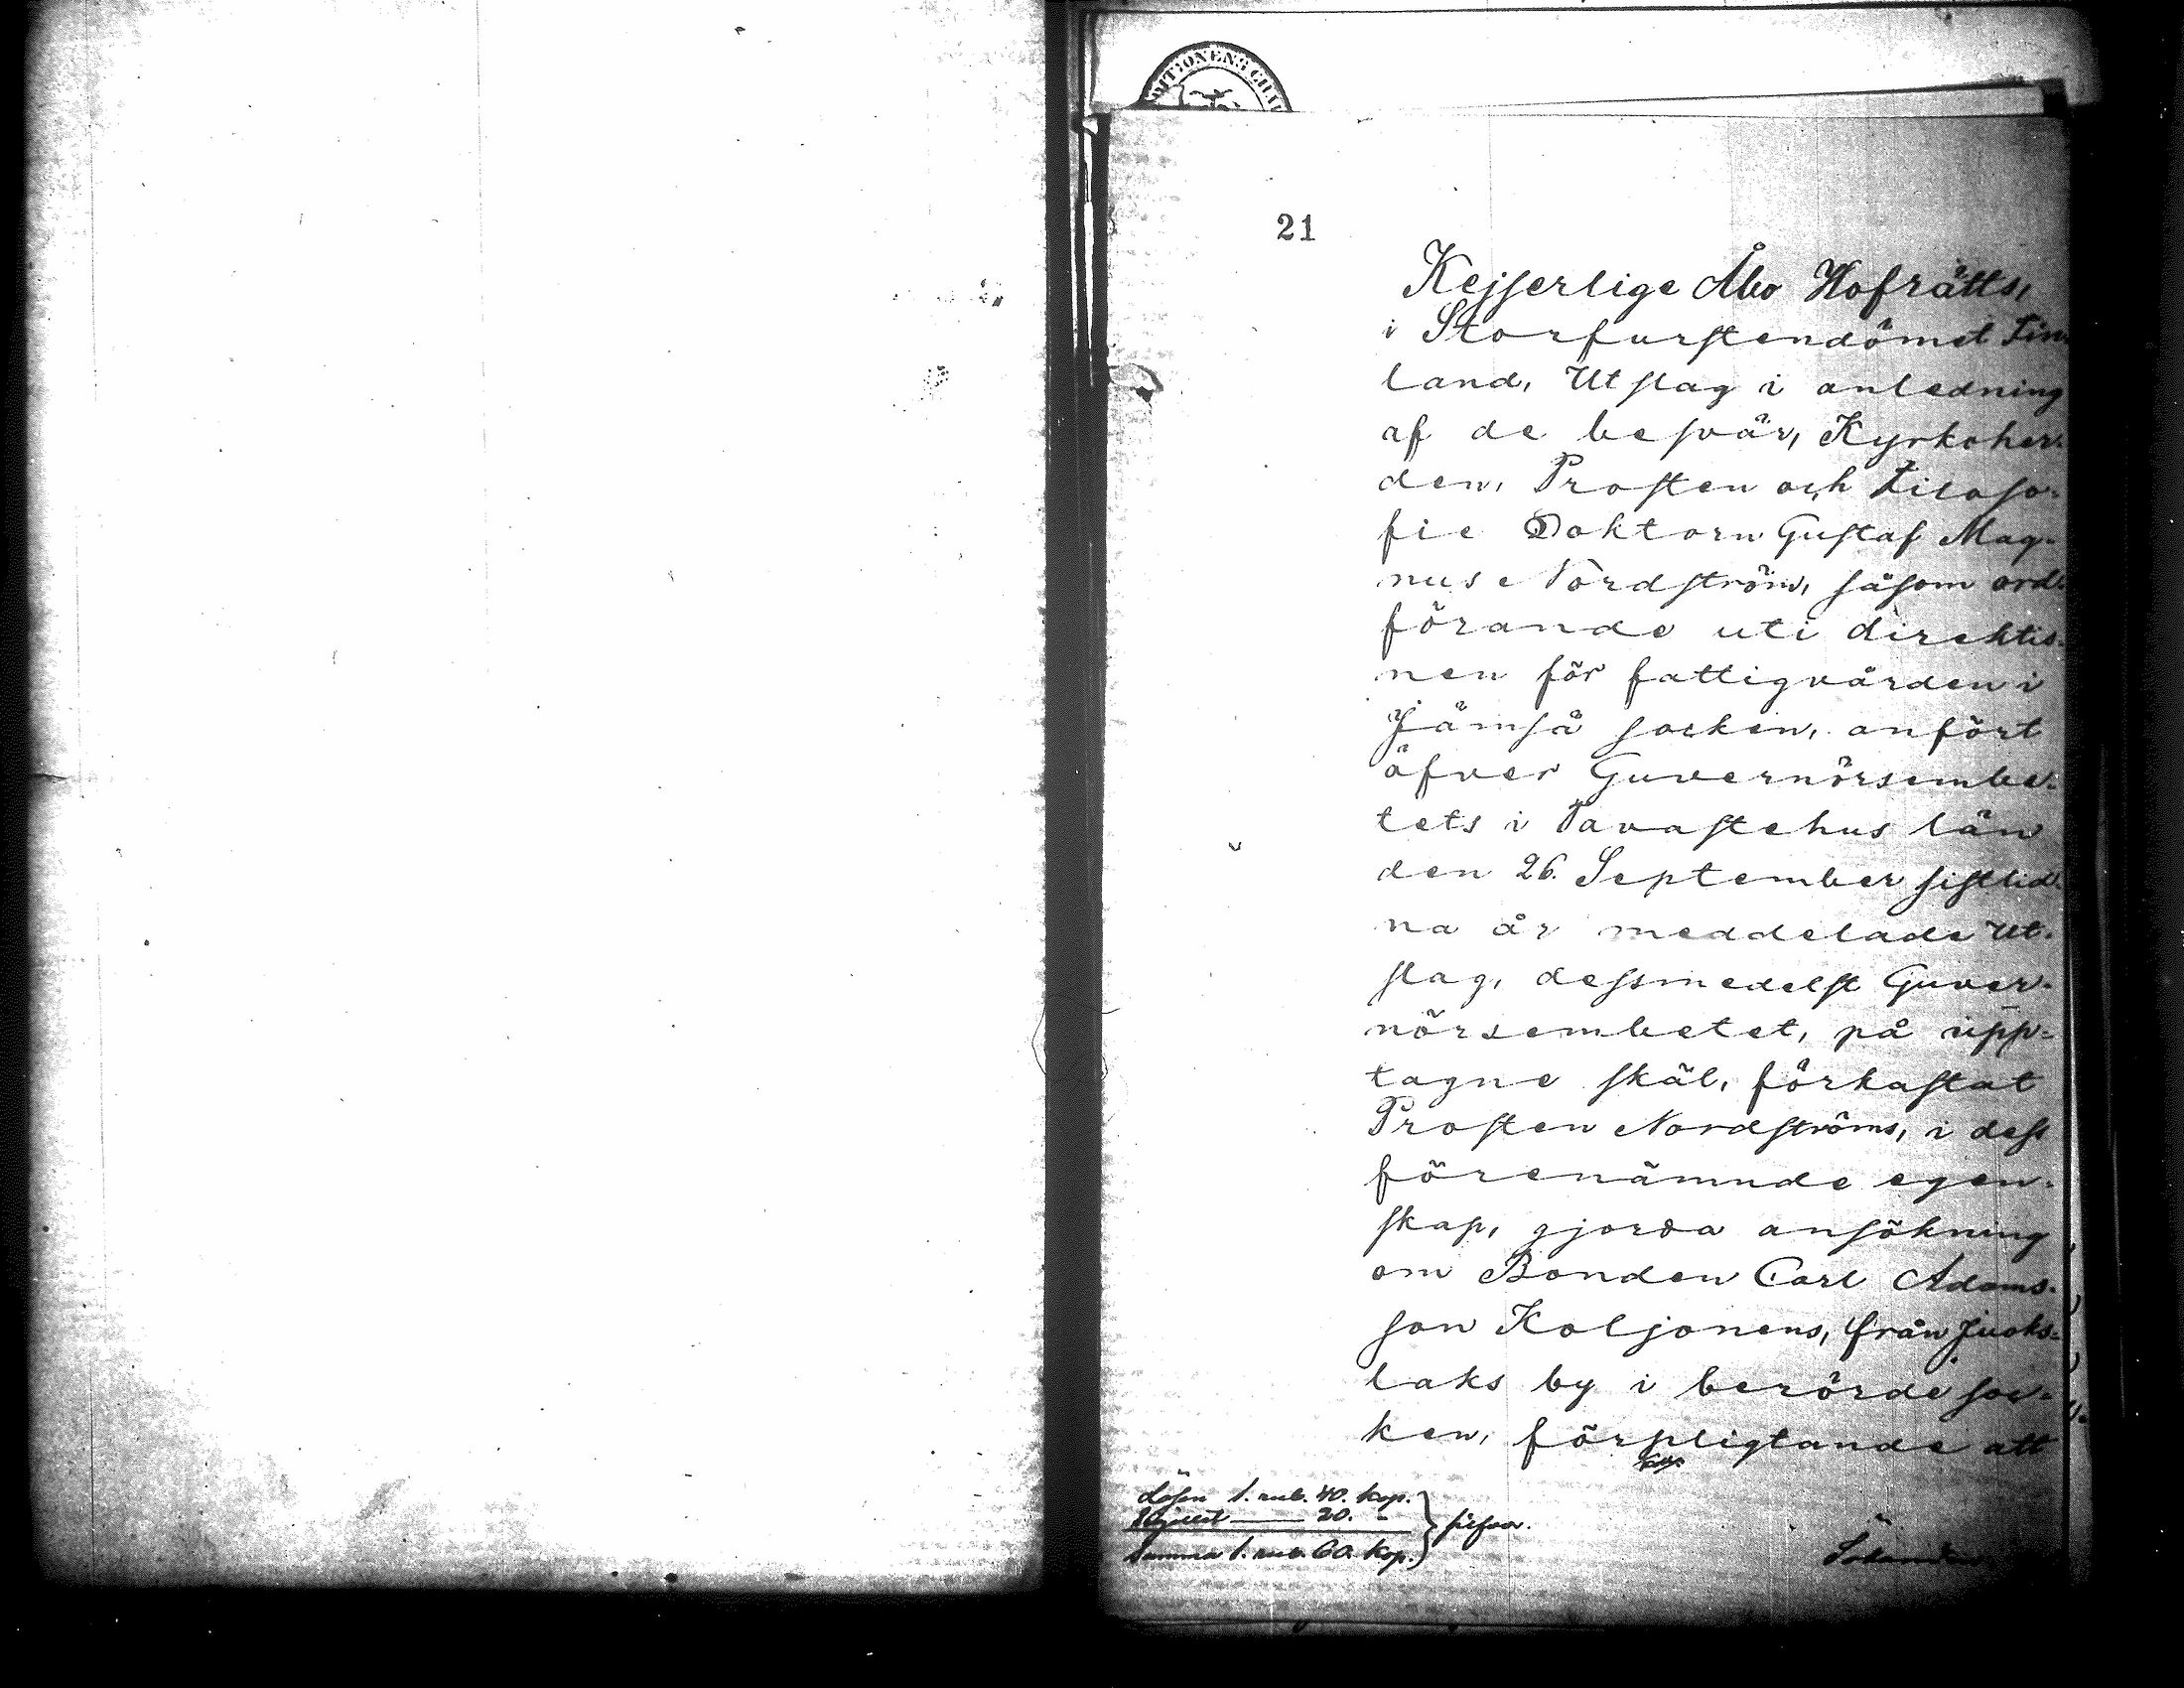 21
Kejserlige Åbo Hofrätts,
i Storfurstendömet Fin
land, Utslag i anledning
af de besvär, Kyrkoher-
den, Prosten och Filoso-
fie Doktorn Gustaf Mag-
nus Nordström, såsom ord-
förande uti direktio-
nen för fattigvården i
Jämsä socken, anfört
öfver Guvernörsembe-
tets i Tavastehus län
den 26. September sistlid-
na år meddelade Ut-
slag, dessmedelst Guver-
nörsembetet, på upp-
tagne skäl, förkastat
Prosten Nordströms, i dess
förenämnde egen-
skap, gjorda ansökning
om Bonden Carl Adams-
son Koljonens, från Juoks-
laks by i berörde soc-
ken, förpligtande att
Lösen 1. rub. 40. kop.
20. "
Summa 1. rub. 60. kop.
silfver.
Sökanden